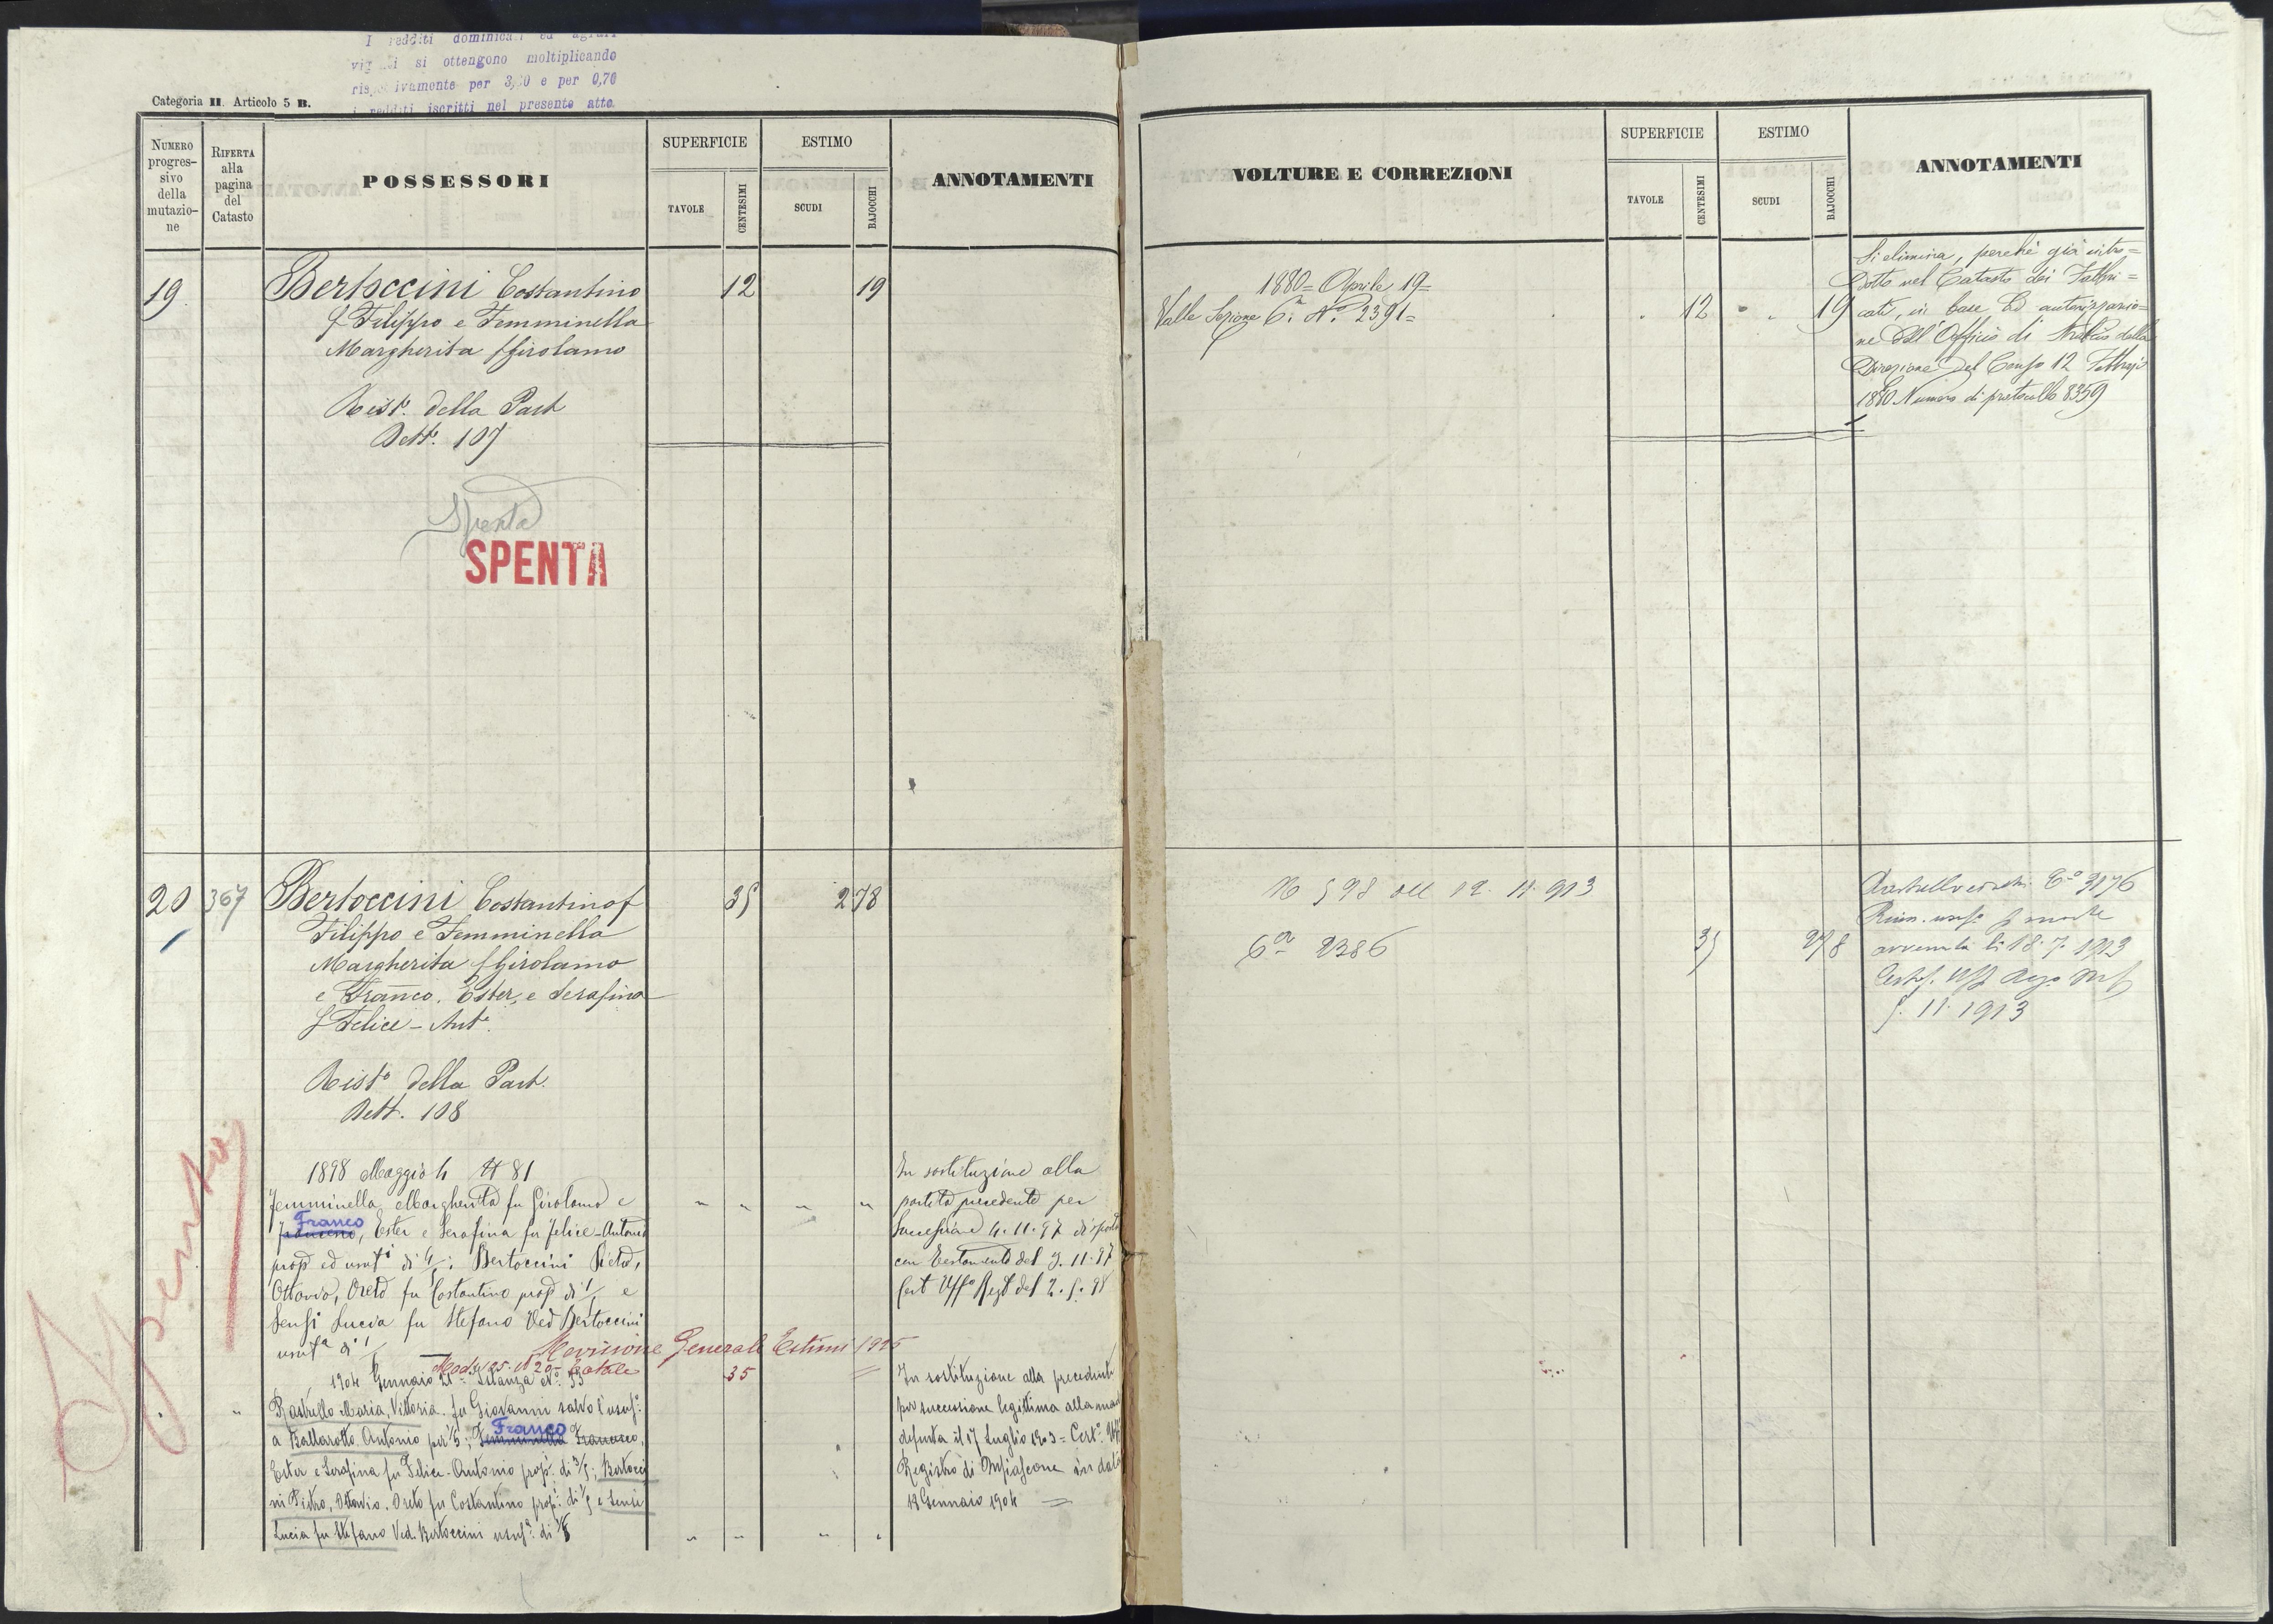 I redditi dominicali ed agrari
si ottengono moltiplicando
rispettivamente per 3,50 e per 0,70
i redditi iscritti nel presente atto.
Categoria II. Articolo 5 B.
NUMERO progres-sivo della mutazio-ne
RIFERTA alla pagina del Catasto
POSSESSORI
SUPERFICIE
TAVOLE
CENTESIMI
ESTIMO
SCUDI
BAJOCCHI
ANNOTAMENTI
19
Bertoccini Costantino 12 19
f Filippo e Femminella
Margherita f Girolamo
Rist.º della Part
Sett.e 107
Spenta
SPENTA
20 367
Bertoccini Costantino f 35 2 78
Filippo e Femminella
Margherita f Girolamo
e Franco. Ester, e Serafina
f Felice - Ant.º
Rist.º della Part.
Sett. 108
Spenta
1898 Maggio 4 N 81
Femminella Margherita fu Girolamo e
Franco
Francesco, Ester e Serafina fu Felice-Antonio
prop ed usufi di 4/5; Bertoccini Pietro,
Ottavio, Oreto fu Costantino prop di 1/5 e
Sensi Lucia fu Stefano Ved Bertoccini
usufª di 1/
In sostituzione alla
partita precedente per
Successione 4.11.97 disposta
con testamento del 3.11.97
Cert Uffº Regº del 2.5.98
Revisione Generale Estimi 1926
Mod. 125. N 20 - Totale 35
1904 Gennaio 21 Istanza Nº 33
Rastrello Maria, Vittoria fu Giovanni salvo l'usuf.º
a Ballarotto Antonio per 1/5; Femminella Francesco,
Franco
Ester e Serafina fu Felice-Antonio prop.i di 3/5; Bertocci
ni Pietro, Ottavio. Oreto fu Costantino prop.i di 1/5 e Sensi
Lucia fu Stefano Ved. Bertoccini usuf.ª di 1/5
In sostituzione alla precedente
per successione legittima alla mad
defunta il 17 Luglio 1903 = Cert.º Uff
Registro di Mfiascone in data
18 Gennaio 1904
VOLTURE E CORREZIONI
SUPERFICIE
TAVOLE
CENTESIMI
ESTIMO
SCUDI
BAJOCCHI
ANNOTAMENTI
1880 = Aprile 19 =
Valle Sezione 6.ª N.º 2391 = 12 19
Si elimina, perchè già intro=
dotto nel Catasto dei Fabbri=
cati, in base ad autorizzazio=
ne dell'Officio di Stralcio della
Direzione del Censo 12 Febbrajo
1880 Numero di protocollo 8359
N 598 del 12. 11. 913
6ª 2386 35 2 78
Rastrello Cº 3176
Riun. usufº p morte
avvenuta li 18. 7. 1913
Certif. Uff Reg. Mf
5. 11. 1913